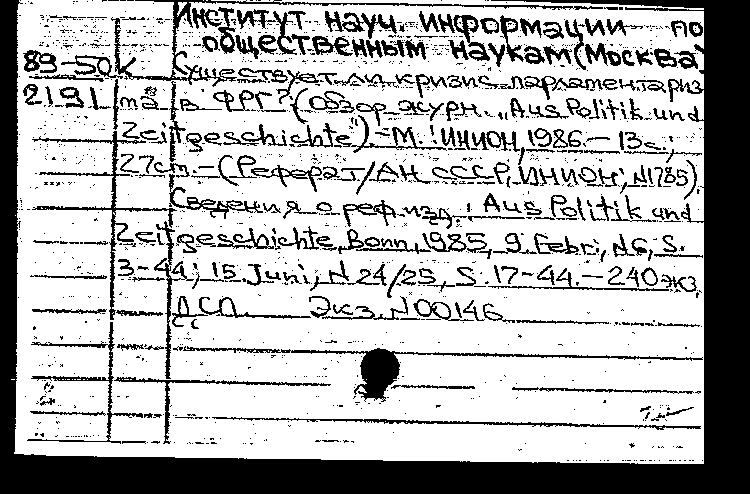 Институт науч. информации по
общественным наукам (Москва)
89-50к Существует ли кризис парламентариз
2191 ма в ФРГ? (Обзор журн. „Aus Politik und
Zeitgeschichte"). - М.: ИНИОН, 1986. - 13с.;
27cm. - (Реферат/АН СССР, ИНИОН; N1785).
Сведения о реф. изд.: Aus Politik und
Zeitgeschichte, Bonn, 1985, 9. Febr., N6, S.
3-44; 15. Juni, N 24/25, S. 17-44. - 240 экз.
ДСП. Экз. N00146